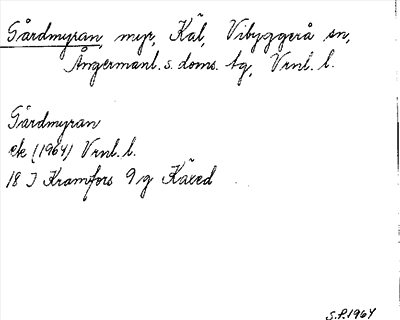 Gårdmyran, myr, Käl, Vibyggerå sn,
Ångermanl. s. doms. tg, Vrnl. l.
Gårdmyran
ek (1964) Vrnl. l.
18 I Kramfors 9 g Käxed
S.P. 1964